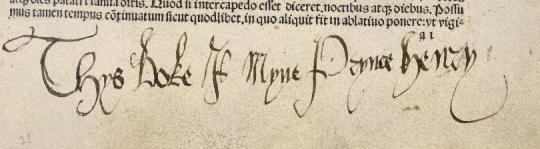 atq; dies patari lianita oftis. Quod si intercapedo esset diceret, noctibus atq; diebus. Possu
mus tamen tempus cõtinuatum sicut quodlibet, in quo aliquit fit in ablatiuo ponere: vt vigi-
a i
Thys boke is myne Prynce henry
21